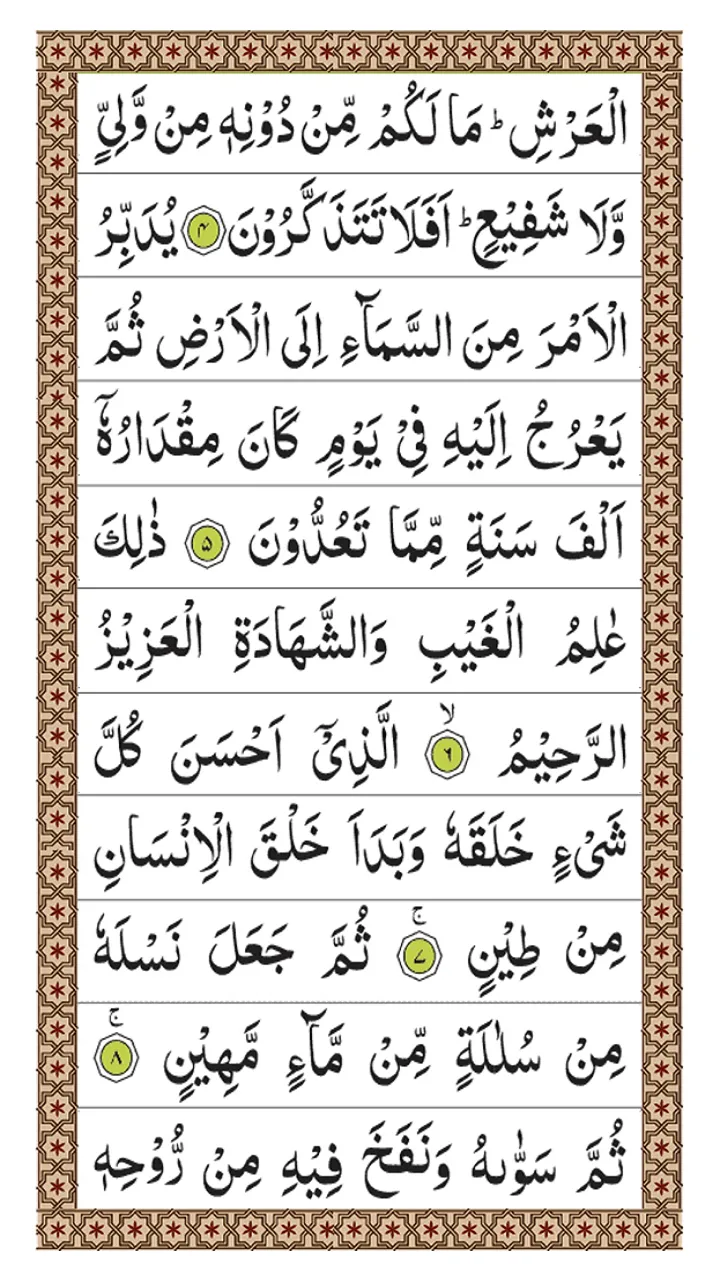 الْعَرْشِ ؕ مَا لَكُمْ مِّنْ دُوْنِهٖ مِنْ وَّلِیٍّ
وَّلَا شَفِیْعٍ ؕ اَفَلَا تَتَذَكَّرُوْنَ ۴ یُدَبِّرُ
الْاَمْرَ مِنَ السَّمَآءِ اِلَی الْاَرْضِ ثُمَّ
یَعْرُجُ اِلَیْهِ فِیْ یَوْمٍ كَانَ مِقْدَارُهٗۤ
اَلْفَ سَنَةٍ مِّمَّا تَعُدُّوْنَ ۵ ذٰلِكَ
عٰلِمُ الْغَیْبِ وَالشَّهَادَةِ الْعَزِیْزُ
الرَّحِیْمُ ۙ ۶ الَّذِیْۤ اَحْسَنَ كُلَّ
شَیْءٍ خَلَقَهٗ وَبَدَاَ خَلْقَ الْاِنْسَانِ
مِنْ طِیْنٍ ۚ ۷ ثُمَّ جَعَلَ نَسْلَهٗ
مِنْ سُلٰلَةٍ مِّنْ مَّآءٍ مَّهِیْنٍ ۚ ۸
ثُمَّ سَوّٰىهُ وَنَفَخَ فِیْهِ مِنْ رُّوْحِهٖ